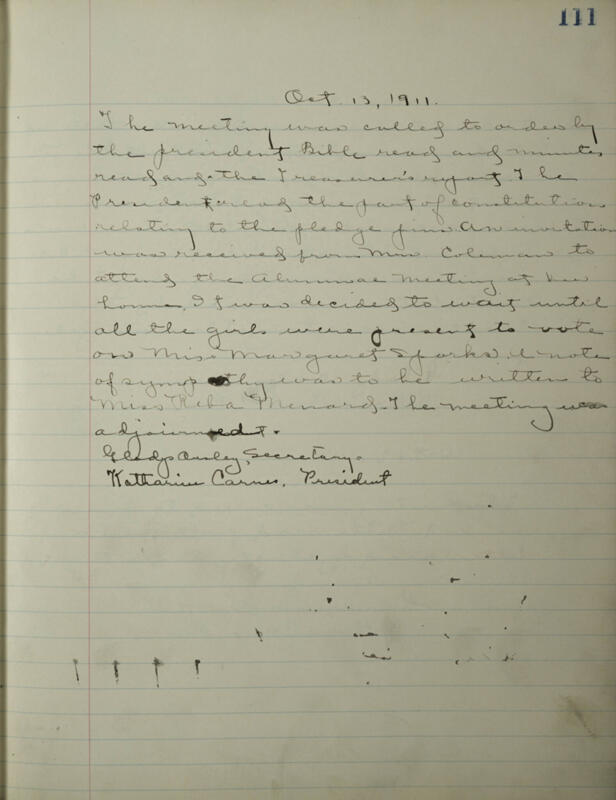 111
Oct. 13, 1911.
The meeting was called to order by
the president Bible read and minutes
read and the Treasurer's report. The
President read the part of constitution
relating to the pledge pins. An invitation
was received from Mrs. Coleman to
attend the Alumnae Meeting at her
home. It was decided to wait until
all the girls were present to vote
on Miss Margaret Sparks. A note
of sympathy was to be written to
Miss Reba Menard. The meeting was
adjourned.
Gladys Ausley, Secretary.
Katharine Carnes, President